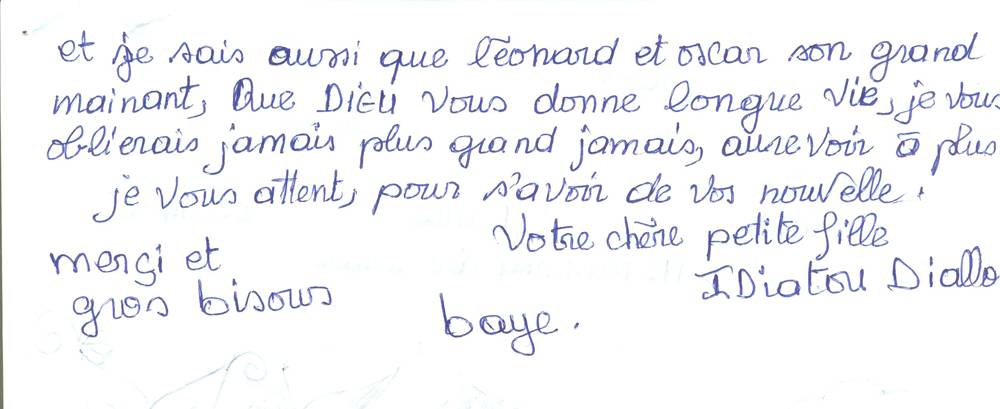 et je sais aussi que léonard et oscar son grand
mainant, Que DiEu vous donne longue vie, je vous
oblierais jamais plus grand jamais, aurevoir à plus
je vous attent, pour s'avoir de vos nouvelle.
Votre chère petite fille
merçi et
IDiatou Diallo
gros bisous
baye.